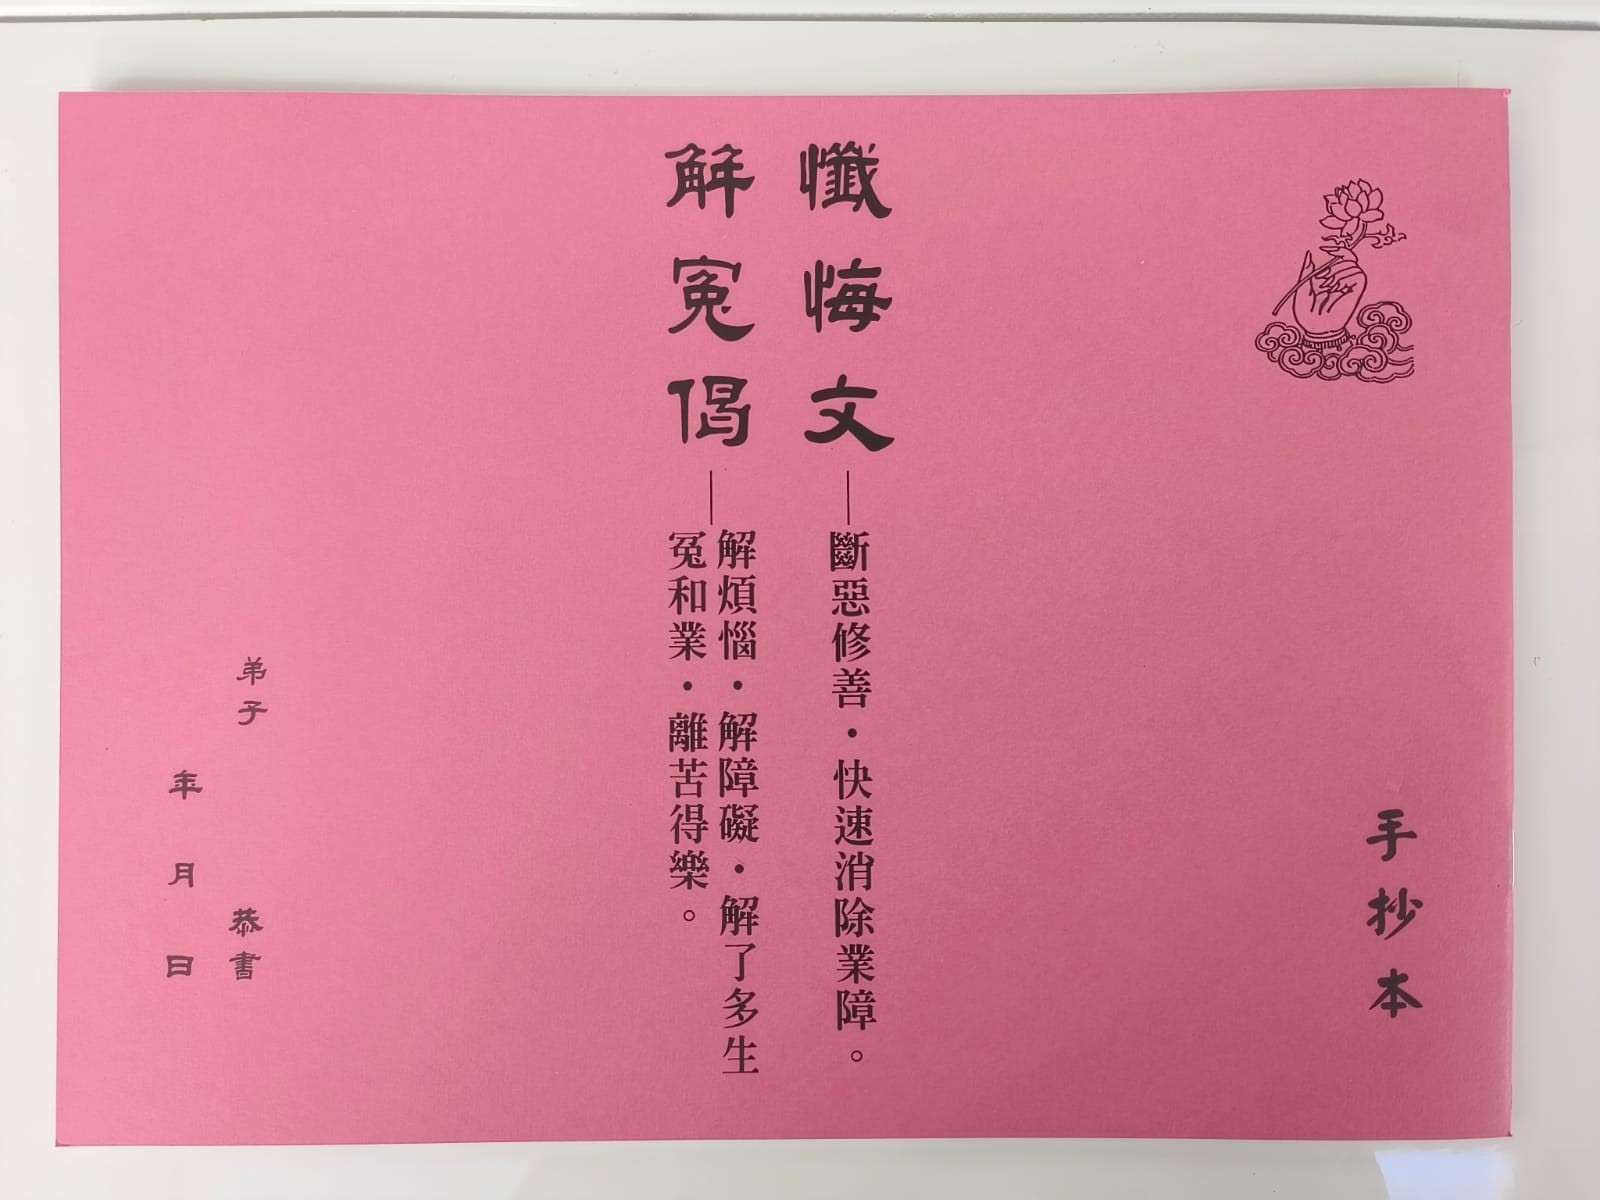 手抄本
懺悔文——斷惡修善・快速消除業障。
解冤偈——解煩惱・解障礙・解了多生
冤和業・離苦得樂。
弟子 恭書
年 月 日